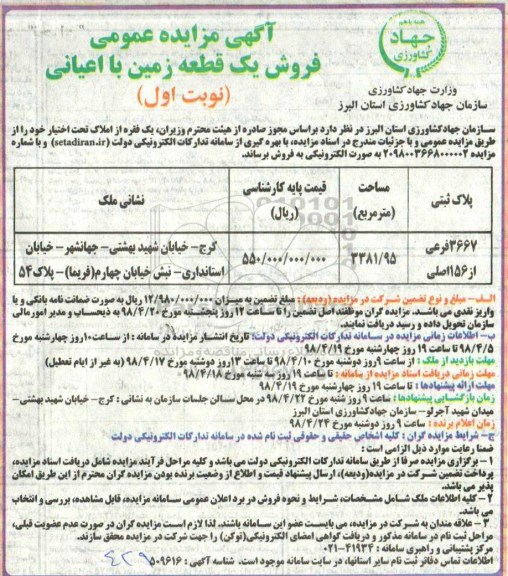 همه با هم
جهاد
کشاورزی
وزارت جهاد کشاورزی
سازمان جهاد کشاورزی استان البرز
آگهی مزایده عمومی
فروش یک قطعه زمین با اعیانی
(نوبت اول)
سازمان جهاد کشاورزی استان البرز در نظر دارد براساس مجوز صادره از هیئت محترم وزیران، یک فقره از املاک تحت اختیار خود را از
طریق مزایده عمومی و با جزئیات مندرج در اسناد مزایده، با بهره گیری از سامانه تدارکات الکترونیکی دولت (setadiran.ir) و با شماره
مزایده ۲۰۹۸۰۰۳۶۶۸۰۰۰۰۰۲ به صورت الکترونیکی به فروش برساند.
پلاک ثبتی
مساحت (مترمربع)
قیمت پایه کارشناسی (ریال)
نشانی ملک
۳۶۶۷فرعی از۱۵۶اصلی
۳۳۸۱/۹۵
۵۵۰/۰۰۰/۰۰۰/۰۰۰
کرج– خیابان شهید بهشتی– جهانشهر– خیابان
استانداری– نبش خیابان چهارم(فریما)– پلاک۵۴
الف– مبلغ و نوع تضمین شرکت در مزایده (ودیعه): مبلغ تضمین به میزان ۱۲/۹۸۰/۰۰۰/۰۰۰ ریال به صورت ضمانت نامه بانکی و یا
واریز نقدی می باشد. مزایده گران موظفند اصل تضمین را تا ساعت ۱۲ روز پنجشنبه مورخ ۹۸/۴/۲۰ به ذیحساب و مدیر امورمالی
سازمان تحویل داده و رسید دریافت نمایند.
ب– اطلاعات زمانی مزایده در سامانه تدارکات الکترونیکی دولت: تاریخ انتشار مزایده در سامانه : از ساعت۱۰روز چهارشنبه مورخ
۹۸/۴/۵ تا ساعت ۱۹ روز چهارشنبه مورخ ۹۸/۴/۱۹
مهلت بازدید از ملک : از ساعت ۹روز دوشنبه مورخ ۹۸/۴/۱۰ تا ساعت ۱۳روز دوشنبه مورخ ۹۸/۴/۱۷ (به غیر از ایام تعطیل)
مهلت زمانی دریافت اسناد مزایده از سامانه : تا ساعت ۱۹ روز سه شنبه مورخ ۹۸/۴/۱۸
مهلت ارائه پیشنهادها : تا ساعت ۱۹ روز چهارشنبه مورخ ۹۸/۴/۱۹
زمان بازگشایی پیشنهادها : ساعت ۹ روز شنبه مورخ ۹۸/۴/۲۲ در محل سالن جلسات سازمان به نشانی : کرج– خیابان شهید بهشتی–
میدان شهید آجرلو– سازمان جهادکشاورزی استان البرز
زمان اعلام برنده : ساعت ۹ روز دوشنبه مورخ ۹۸/۴/۲۴
ج– شرایط مزایده گران : کلیه اشخاص حقیقی و حقوقی ثبت نام شده در سامانه تدارکات الکترونیکی دولت
ضمنا رعایت موارد ذیل الزامی است :
۱ – برگزاری مزایده صرفا از طریق سامانه تدارکات الکترونیکی دولت می باشد و کلیه مراحل فرآیند مزایده شامل دریافت اسناد مزایده،
پرداخت تضمین شرکت در مزایده(ودیعه)، ارسال پیشنهاد قیمت و اطلاع از وضعیت برنده بودن مزایده گران محترم از این طریق امکان
پذیر می باشد.
۲ – کلیه اطلاعات ملک شامل مشخصات، شرایط و نحوه فروش در برد اعلان عمومی سامانه مزایده، قابل مشاهده، بررسی و انتخاب
می باشد.
۳ – علاقه مندان به شرکت در مزایده، می بایست عضو این سامانه باشند. لذا لازم است مزایده گران در صورت عدم عضویت قبلی،
مراحل ثبت نام در سامانه مذکور و دریافت گواهی امضای الکترونیکی(توکن) را جهت شرکت در مزایده محقق سازند.
مرکز پشتیبانی و راهبری سامانه : ۴۱۹۳۴–۰۲۱
اطلاعات تماس دفاتر ثبت نام سایر استانها، در سایت سامانه موجود است. شناسه آگهی : ۵۰۹۶۱۶